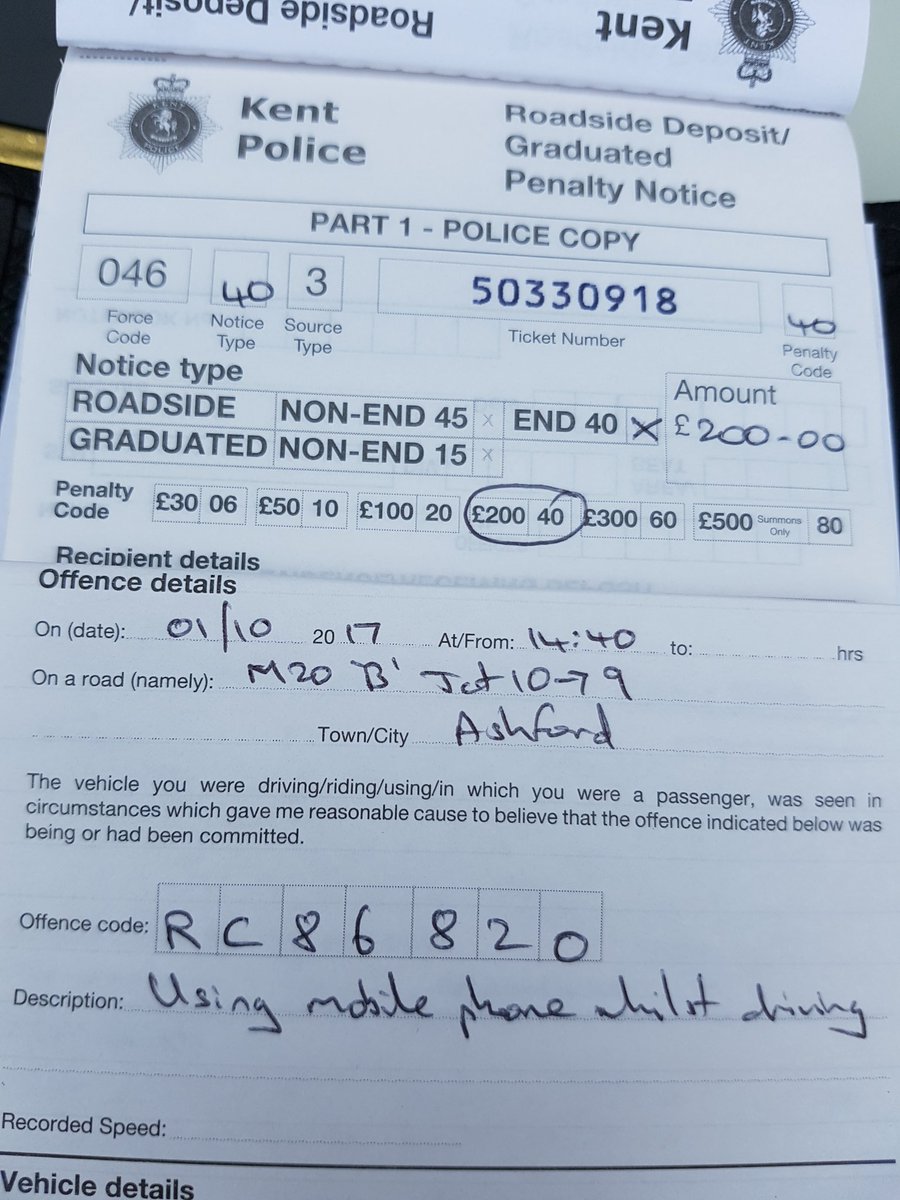 Roadside Deposit/
Kent
Kent
Police
Roadside Deposit/
Graduated
Penalty Notice
PART 1 - POLICE COPY
046 40 3 50330918 40
Force Code
Notice Type
Source Type
Ticket Number
Penalty Code
Notice type
Amount
£200-00
ROADSIDE NON-END 45 x END 40 X
GRADUATED NON-END 15 x
Penalty Code
£30 06 £50 10 £100 20 £200 40 £300 60 £500 Summons Only 80
Recipient details
Offence details
On (date): 01/10 2017 At/From: 14:40 to: hrs
On a road (namely): M20 'B' Jct 10-79
Town/City Ashford
The vehicle you were driving/riding/using/in which you were a passenger, was seen in
circumstances which gave me reasonable cause to believe that the offence indicated below was
being or had been committed.
Offence code: RC86820
Description: Using mobile phone whilst driving
Recorded Speed:
Vehicle details